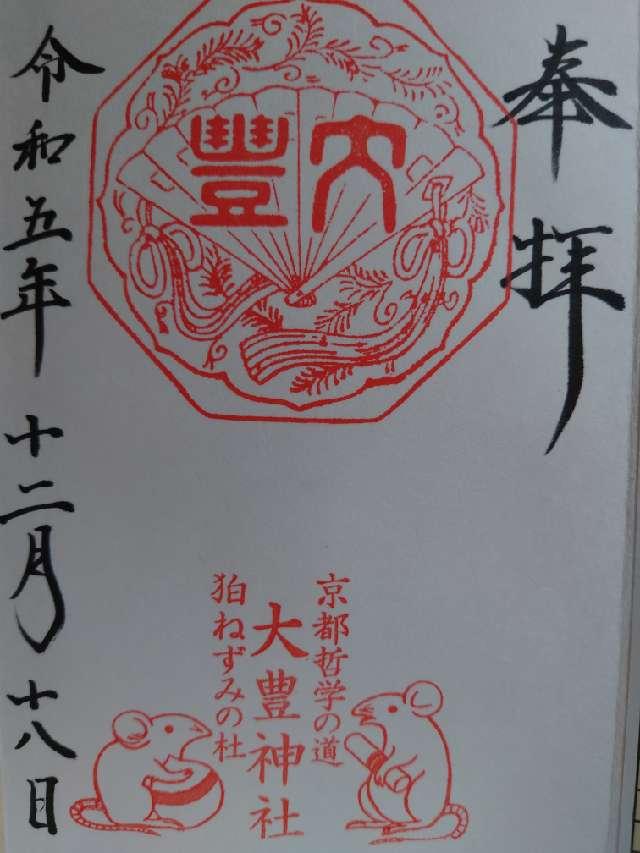 奉拝
大豐
京都哲学の道
大豊神社
狛ねずみの杜
令和五年十二月十八日